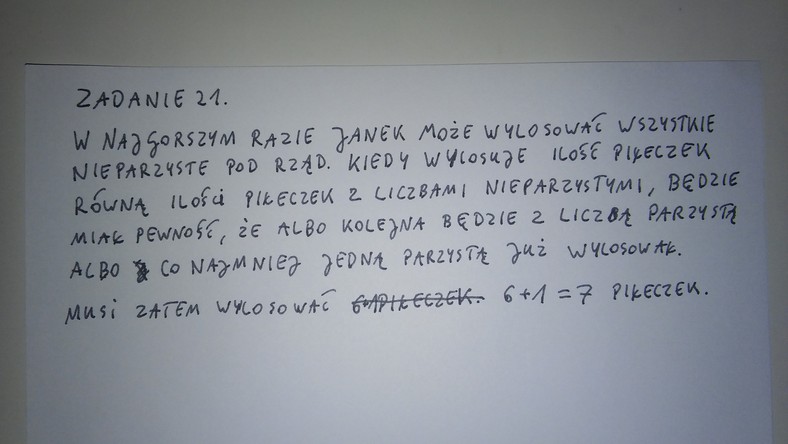 ZADANIE 21.
W NAJGORSZYM RAZIE JANEK MOŻE WYLOSOWAĆ WSZYSTKIE
NIEPARZYSTE POD RZĄD. KIEDY WYLOSUJE ILOŚĆ PIŁECZEK
RÓWNĄ ILOŚCI PIŁECZEK Z LICZBAMI NIEPARZYSTYMI, BĘDZIE
MIAŁ PEWNOŚĆ, ŻE ALBO KOLEJNA BĘDZIE Z LICZBĄ PARZYSTĄ
ALBO CO NAJMNIEJ JEDNĄ PARZYSTĄ JUŻ WYLOSOWAŁ.
MUSI ZATEM WYLOSOWAĆ 6+1=7 PIŁECZEK.